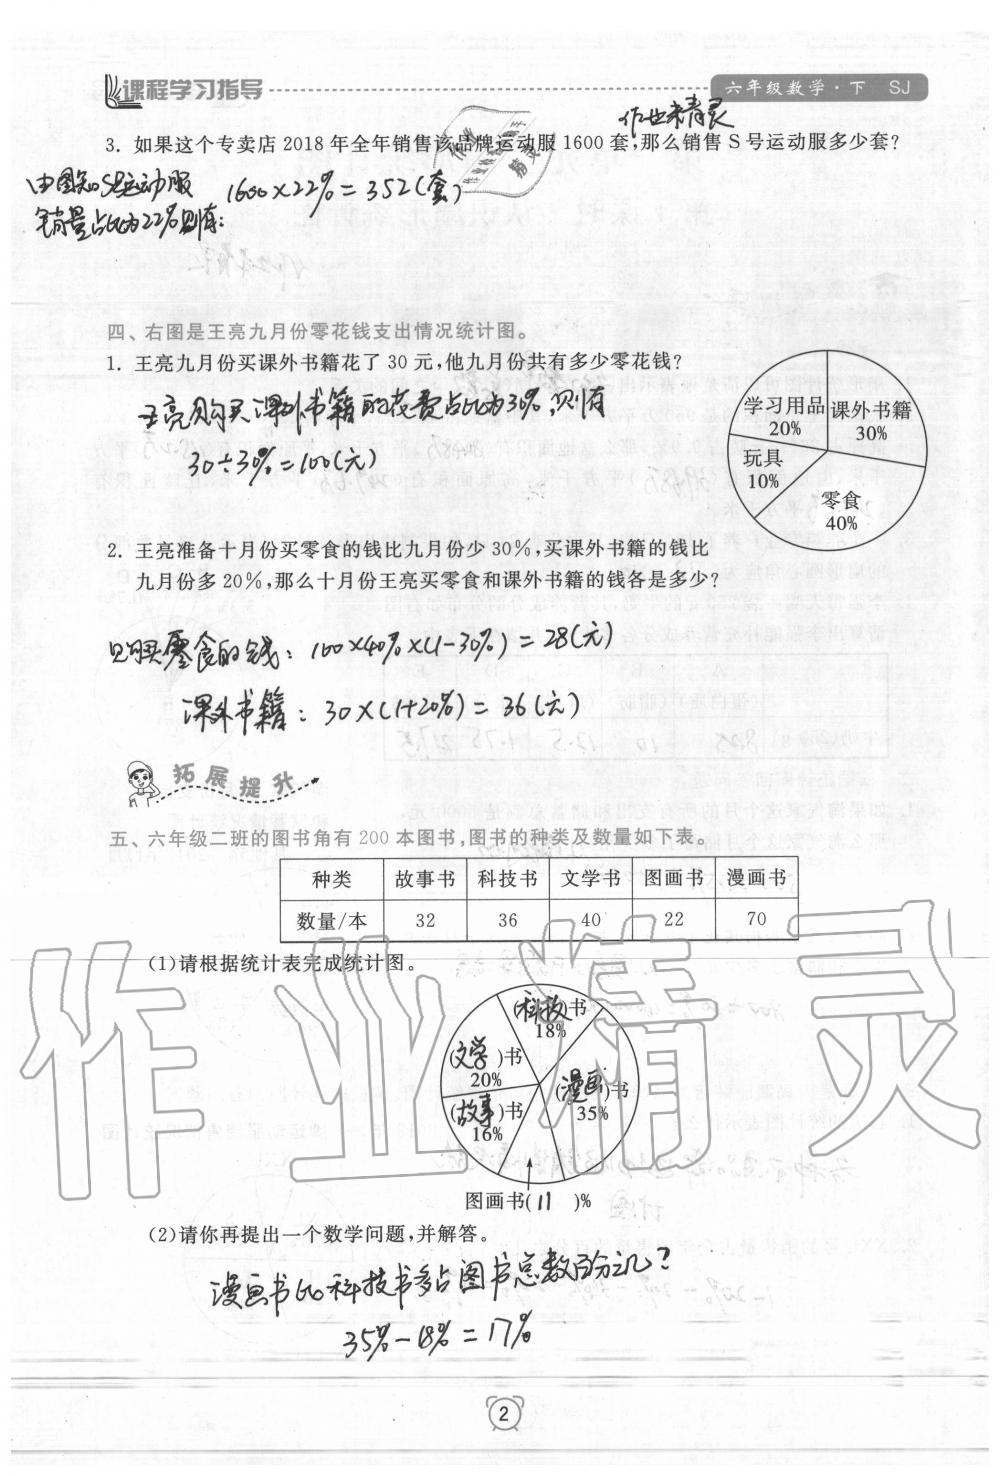 课程学习指导
六年级数学·下 SJ
作业精灵
3. 如果这个专卖店 2018 年全年销售该品牌运动服 1600 套,那么销售 S 号运动服多少套?
由图知S号运动服
销量占比为22%则有:
1600×22%=352(套)
四、右图是王亮九月份零花钱支出情况统计图。
1. 王亮九月份买课外书籍花了 30 元,他九月份共有多少零花钱?
王亮购买课外书籍的花费占比为30%,则有
30÷30%=100(元)
学习用品
20%
课外书籍
30%
玩具
10%
零食
40%
2. 王亮准备十月份买零食的钱比九月份少 30%,买课外书籍的钱比
九月份多 20%,那么十月份王亮买零食和课外书籍的钱各是多少?
购买零食的钱:100×40%×(1-30%)=28(元)
课外书籍:30×(1+20%)=36(元)
拓展提升
五、六年级二班的图书角有 200 本图书,图书的种类及数量如下表。
种类 故事书 科技书 文学书 图画书 漫画书
数量/本 32 36 40 22 70
(1)请根据统计表完成统计图。
(科技)书
18%
(文学)书
20%
(漫画)书
35%
(故事)书
16%
图画书(11)%
(2)请你再提出一个数学问题,并解答。
漫画书比科技书多占图书总数百分之几?
35%-18%=17%
2
作业精灵